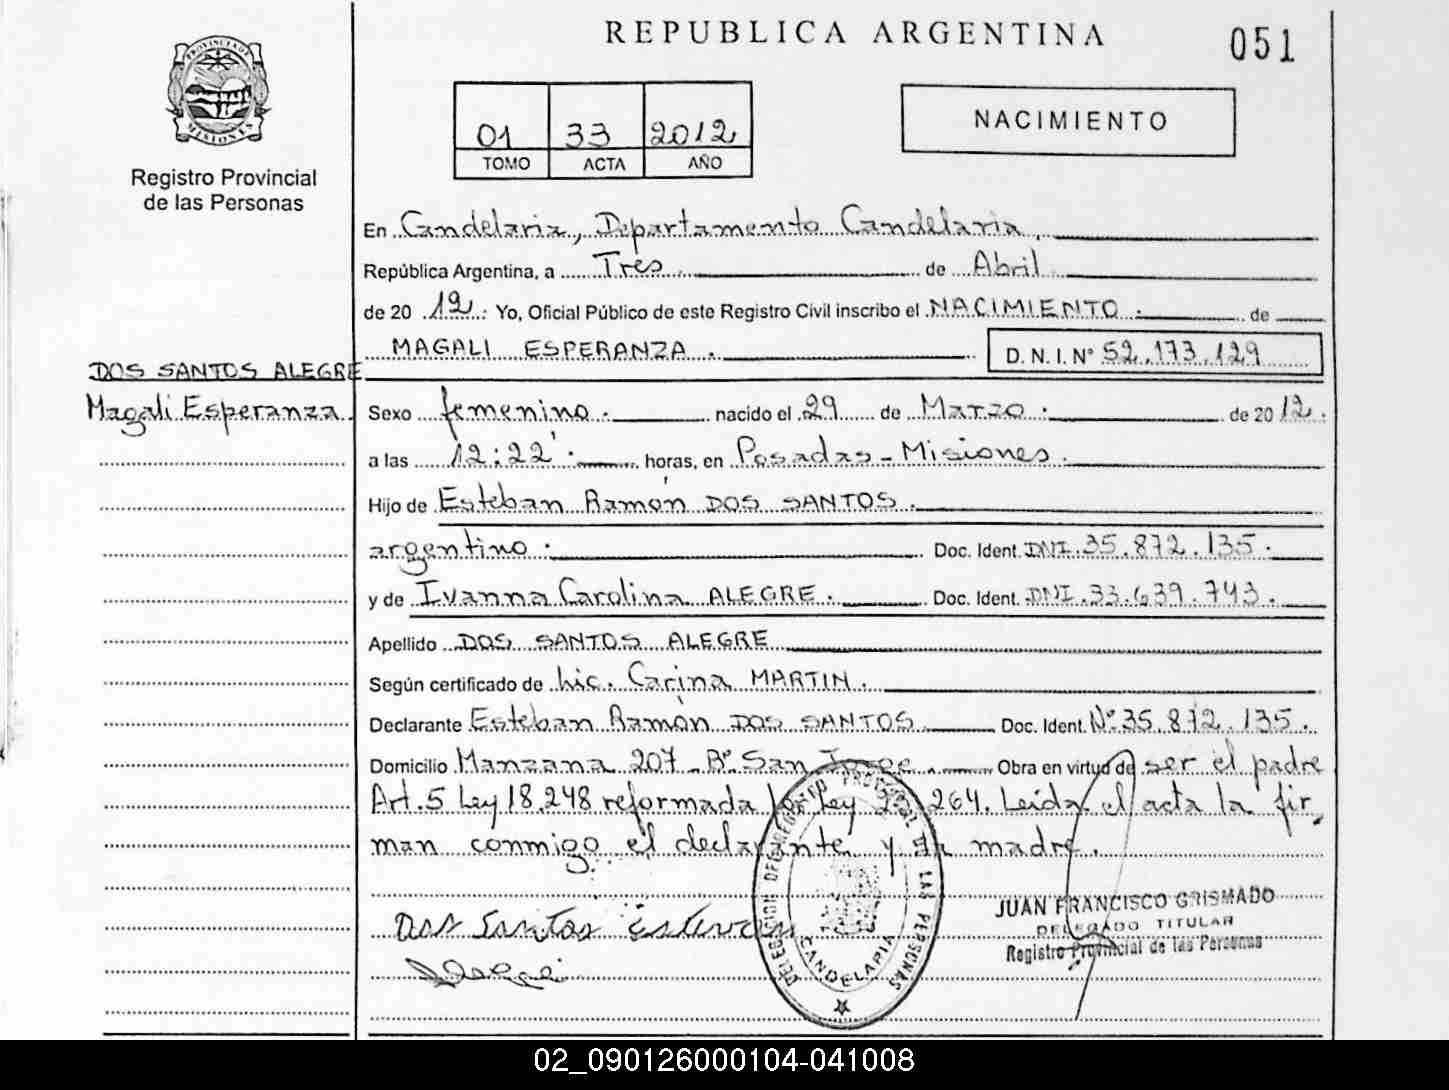 REPUBLICA ARGENTINA
051
PROVINCIA DE MISIONES
Registro Provincial
de las Personas
01 33 2012
TOMO ACTA AÑO
NACIMIENTO
En Candelaria, Departamento Candelaria.
República Argentina, a Tres de Abril
de 20 12. Yo, Oficial Público de este Registro Civil inscribo el NACIMIENTO. de
MAGALI ESPERANZA. D. N. I. N° 52.173.129
DOS SANTOS ALEGRE
Magali Esperanza.
Sexo femenino. nacido el 29 de Marzo. de 20 12.
a las 12:22'. horas, en Posadas - Misiones.
Hijo de Esteban Ramón DOS SANTOS.
argentino. Doc. Ident. DNI. 35.872.135.
y de Ivanna Carolina ALEGRE. Doc. Ident. DNI. 33.639.743.
Apellido DOS SANTOS ALEGRE
Según certificado de Lic. Carina MARTIN.
Declarante Esteban Ramón DOS SANTOS. Doc. Ident. N° 35.872.135.
Domicilio Manzana 207 - B° San Jorge. Obra en virtud de ser el padre
Art. 5 Ley 18.248 reformada Ley 264. Leída el acta la fir
man conmigo el declarante y la madre.
Dos Santos Esteban
DELEGACION DEL REGISTRO PROVINCIAL DE LAS PERSONAS
CANDELARIA
JUAN FRANCISCO GRISMADO
DELEGADO TITULAR
Registro Provincial de las Personas
02_090126000104-041008